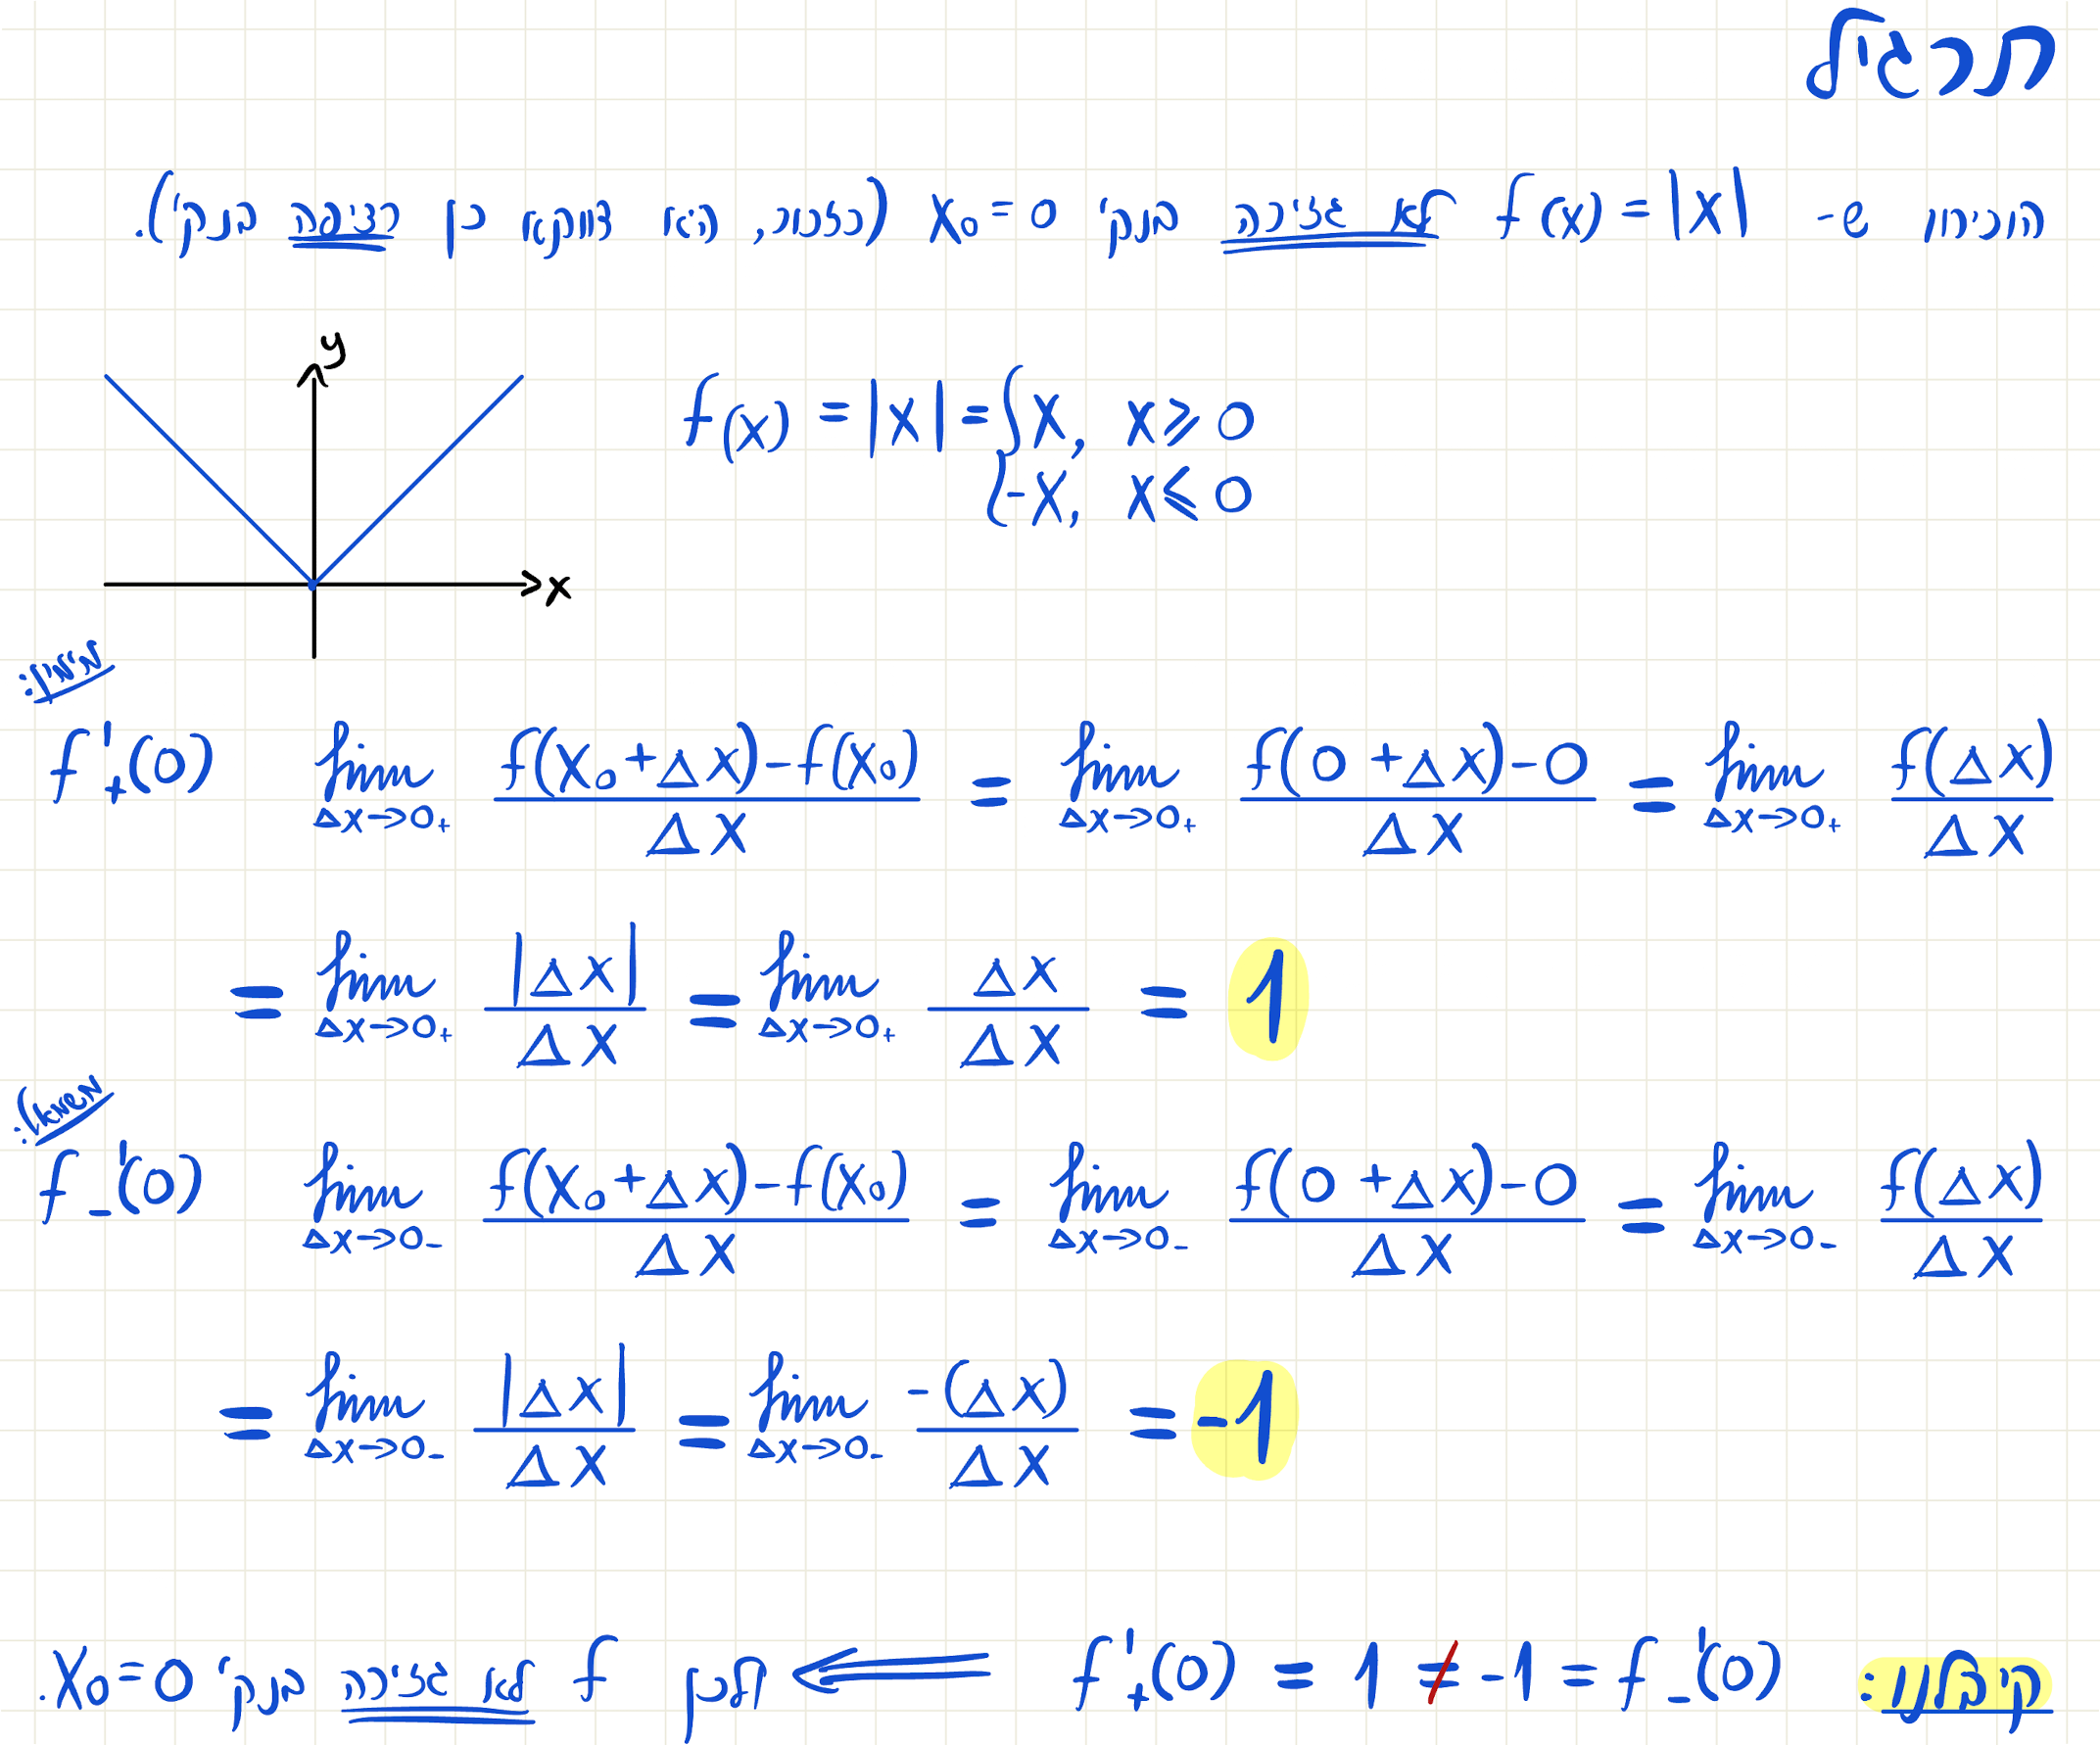 תרגיל
הוכיחו ש- f(x) = |x| לא גזירה בנק' x₀ = 0 (כזכור, היא דווקא כן רציפה בנק').
y
f(x) = |x| = { x, x ⩾ 0
-x, x ⩽ 0
x
מימין:
f'₊(0) lim_{Δx→0₊} (f(x₀+Δx)-f(x₀))/Δx = lim_{Δx→0₊} (f(0+Δx)-0)/Δx = lim_{Δx→0₊} f(Δx)/Δx
= lim_{Δx→0₊} |Δx|/Δx = lim_{Δx→0₊} Δx/Δx = 1
משמאל:
f₋'(0) lim_{Δx→0₋} (f(x₀+Δx)-f(x₀))/Δx = lim_{Δx→0₋} (f(0+Δx)-0)/Δx = lim_{Δx→0₋} f(Δx)/Δx
= lim_{Δx→0₋} |Δx|/Δx = lim_{Δx→0₋} -(Δx)/Δx = -1
קיבלנו: f'₊(0) = 1 ≠ -1 = f₋'(0) ⟸ לכן f לא גזירה בנק' x₀=0.